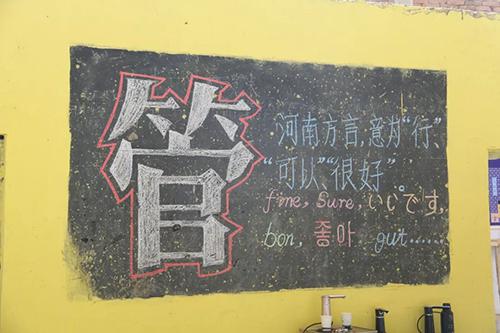 管
河南方言,意为“行”、
“可以”“很好”。
fine, Sure, いじです,
bon, 좋아 gut......